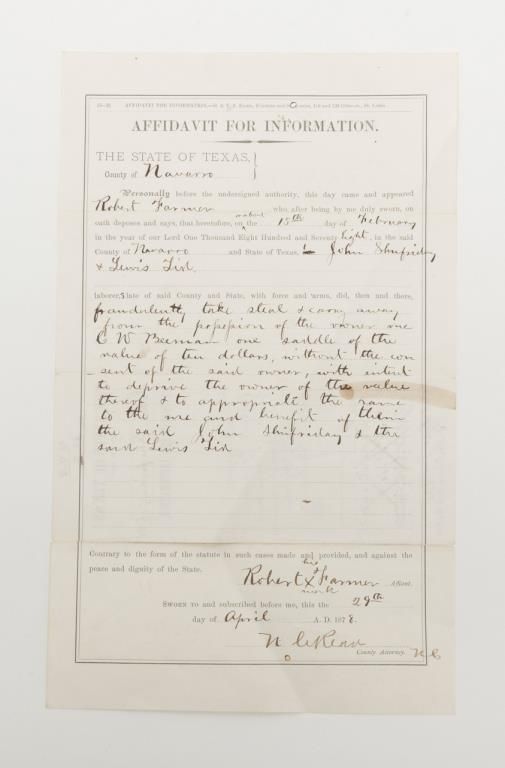 AFFIDAVIT FOR INFORMATION.
AFFIDAVIT FOR INFORMATION.
THE STATE OF TEXAS,
County of Navarro
Personally before the undersigned authority, this day came and appeared
Robert Farmer who, after being by me duly sworn, on
oath deposes and says, that heretofore, on the 15th day of February
about
in the year of our Lord One Thousand Eight Hundred and Seventy Eight, in the said
County of Navarro and State of Texas, John
& Lewis
laborers, late of said County and State, with force and arms, did, then and there,
fraudulently take steal & carry away
from the possession of the owner one
C W Beeman one saddle of the
value of ten dollars, without the con
sent of the said owner, with intent
to deprive the owner of the value
thereof & to appropriate the same
to the use and benefit of them
the said John & the
said Lewis
Contrary to the form of the statute in such cases made and provided, and against the
peace and dignity of the State.
his
Robert X Farmer Affiant.
mark
SWORN TO and subscribed before me, this the 29th
day of April A. D. 1878.
County Attorney. N C